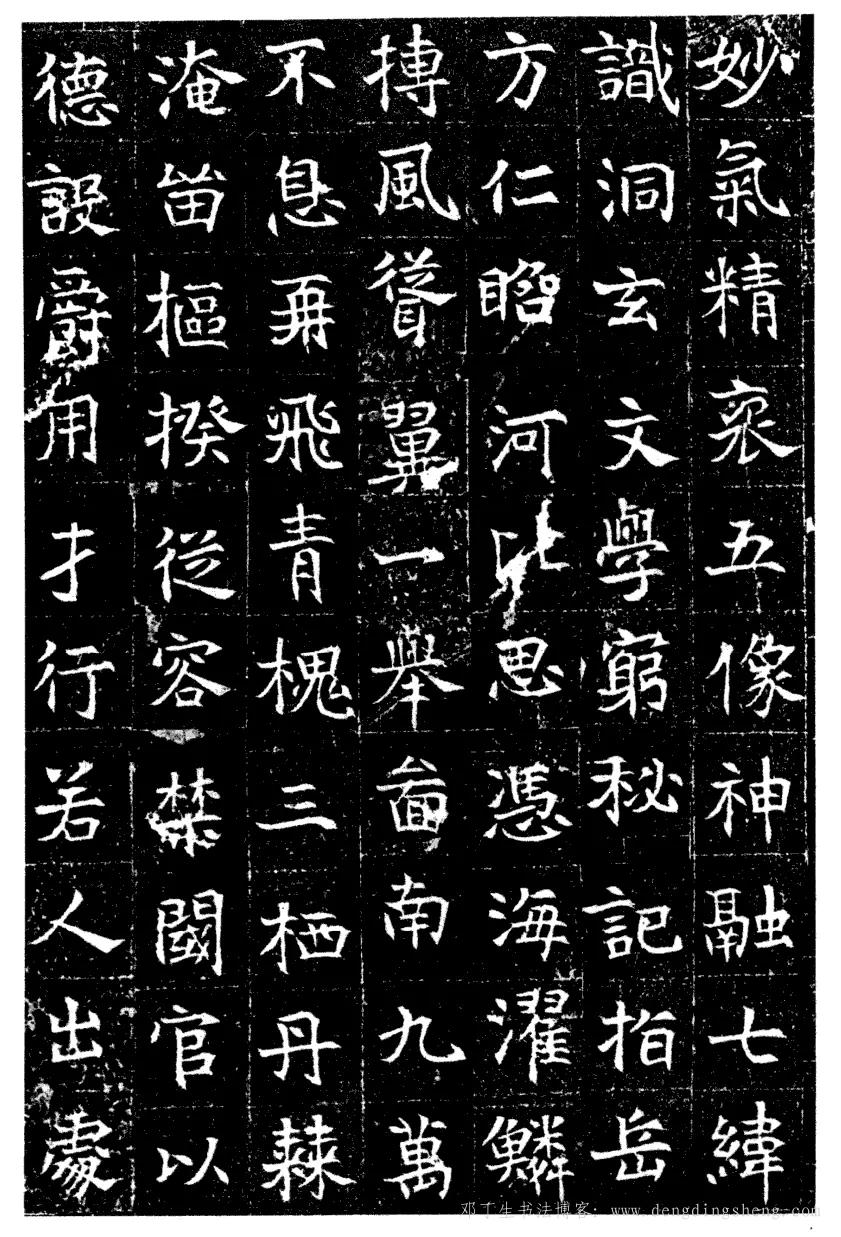 妙氣精裒五像神融七緯
識洞玄文學窮秘記指岳
方仁瞻河比思憑海濯鱗
摶風聳翼一舉啚南九萬
不息再飛青槐三栖丹棘
淹留樞揆從容禁闥官以
德設爵用才行若人出處
邓丁生书法博客：www.dengdingsheng.com